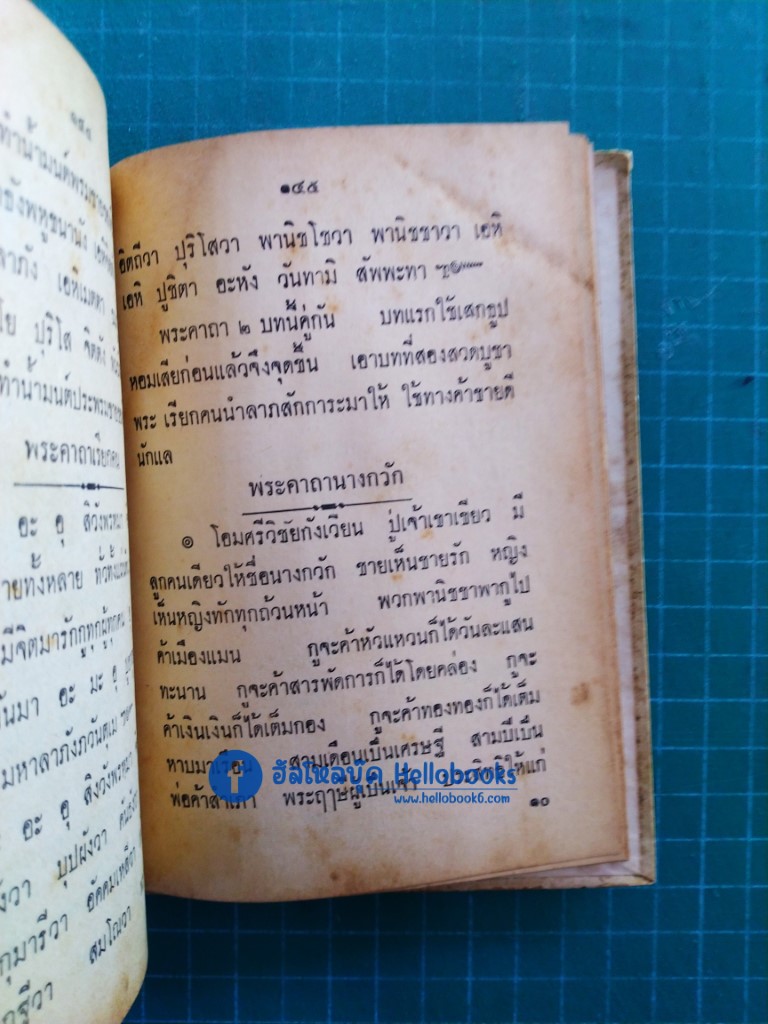 ๑๔๔
ทำน้ำมนต์พรม
ลาภัง เอหิเมตตา
โย ปุริโส จิตตัง
ทำน้ำมนต์ประพรม
พระคาถาเรียกคน
อะ อุ สิวังพรหมา
ายทั้งหลาย ทั่วทั้ง
มีจิตมารักกูทุกผู้ทุกคน
นมา อะ มะ อุ
มหาลาภังภวันตุเม
อะ อุ สิงวังพรหมา
งวา บุปผังวา
กุมารีวา อัคคมเหสีวา
สมโณวา
๑๔๕
อิตถีวา ปุริโสวา พานิชโชวา พานิชชาวา เอหิ
เอหิ ปูชิตา อะหัง วันทามิ สัพพะทา ๚๛
พระคาถา ๒ บทนี้คู่กัน บทแรกใช้เสกธูป
หอมเสียก่อนแล้วจึงจุดขึ้น เอาบทที่สองสวดบูชา
พระ เรียกคนนำลาภสักการะมาให้ ใช้ทางค้าขายดี
นักแล
พระคาถานางกวัก
๏ โอมศรีวิชัยกังเวียน ปู่เจ้าเขาเขียว มี
ลูกคนเดียวให้ชื่อนางกวัก ชายเห็นชายรัก หญิง
เห็นหญิงทักทุกถ้วนหน้า พวกพานิชชาพากูไป
ค้าเมืองแมน กูจะค้าหัวแหวนก็ได้วันละแสน
ทะนาน กูจะค้าสารพัดการก็ได้โดยคล่อง กูจะ
ค้าเงินเงินก็ได้เต็มกอง กูจะค้าทองทองก็ได้เต็ม
หาบมาเรือน สามเดือนเป็นเศรษฐี สามปีเป็น
พ่อค้าสำเภา พระฤๅษีผู้เป็นเจ้า ประสิทธิ์ให้แก่
๑๐
ฮัลโหลบุ๊ค Hellobooks
www.hellobook6.com